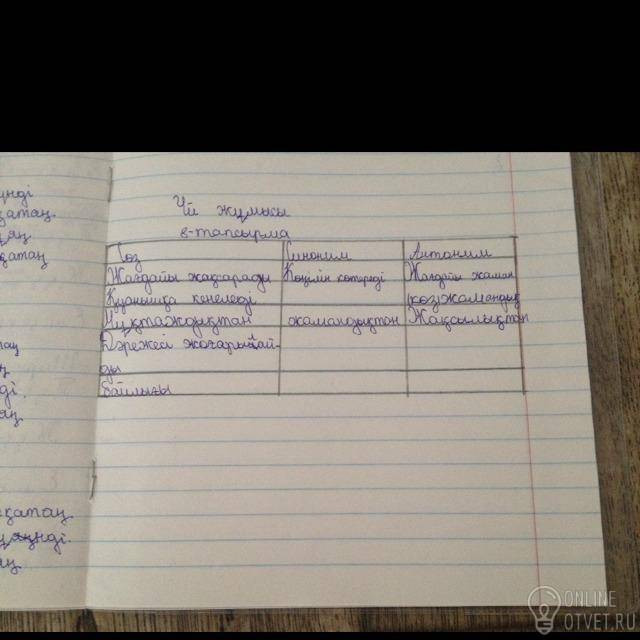 Үй жұмысы
8-тапсырма
Сөз Синоним Антоним
Жағдайы жақсарады Көңілін көтереді Жағдайы жаман
Қуанышқа кенеледі көзіжамандық
Мұқтаждықтан жамандықтан Жақсылықтан
Дәрежесі жоғарылай-
ды
Байлығы
қатаң
қатаң
қатаң.
ONLINE
OTVET.RU